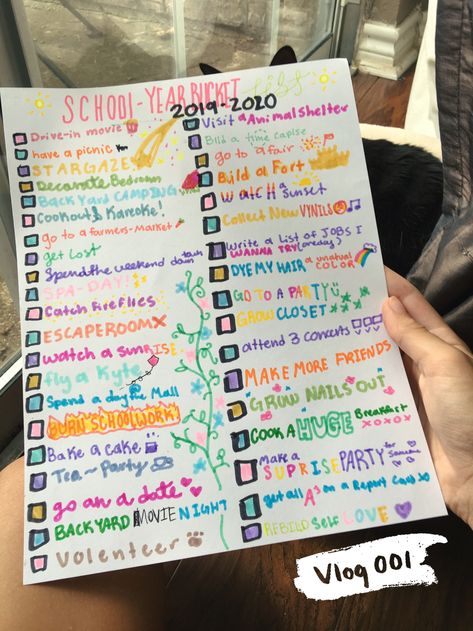 SCHOOL-YEAR BUCKET LIST
2019-2020
Drive-in movie
have a picnic
STARGAZE
Decorate Bedroom
BACKYARD CAMPING
Cookout & Kareoke!
go to a farmers-market
get Lost
Spend the weekend down town
SPA-DAY!
Catch fireflies
ESCAPEROOM
watch a sunRISE
fly a Kyte
Spend a day@the Mall
BURN SCHOOLWORK
Bake a cake
Tea~Party
go on a date
BACKYARD MOVIE NIGHT
Volenteer
Visit a Animal shelter
Bild a time capsle
go to a fair
Build a Fort
WATCH a sunset
Collect New VYNILS
Write a List of JOBS I
WANNA TRY(oneday)
DYE MY HAIR a unatual COLOR
GO TO A PARTY
GROW CLOSET
attend 3 concerts
MAKE MORE FRIENDS
GROW NAILS OUT
COOK A HUGE Breakfast
XOXOXO
Make a SUPRISE PARTY for someone
get all A's on a Report Card
REBILD self LOVE
Vlog 001